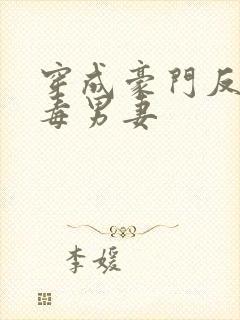 穿成豪門反
毒男妻
李媛